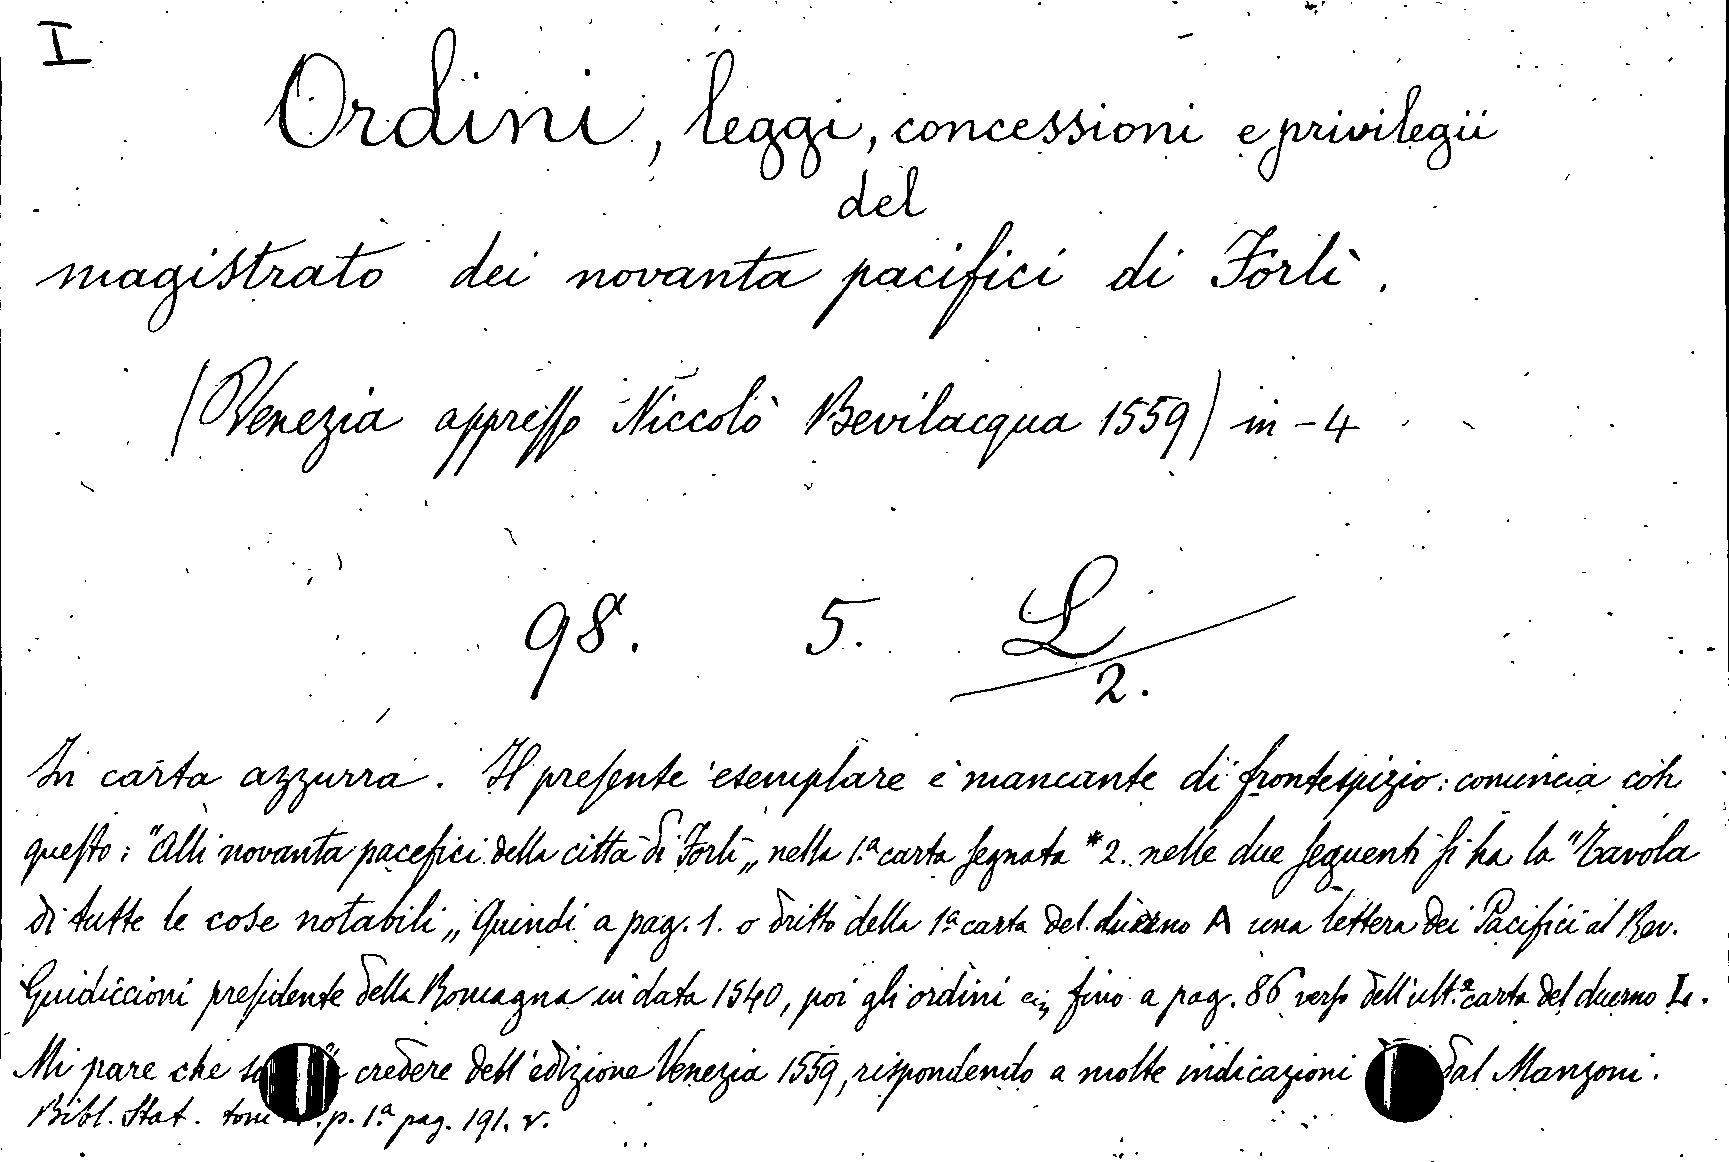 I
Ordini, leggi, concessioni e privilegii
del
magistrato dei novanta pacifici di Forlì.
(Venezia appresso Niccolò Bevilacqua 1559) in-4
98. 5. L/2.
In carta azzurra. Il presente esemplare è mancante di frontespizio: comincia con
questo: "Alli novanta pacefici della città di Forlì„ nella 1.a carta segnata *2. nelle due seguenti si ha la "Tavola
di tutte le cose notabili„ Quindi a pag. 1. o dritto della 1a carta del duerno A una lettera dei Pacifici al Rev.
Guidiccioni presidente della Romagna in data 1540, poi gli ordini fino a pag. 86 verso dell'ult.a carta del duerno L.
Mi pare che credere dell'edizione Venezia 1559, rispondendo a molte indicazioni dal Manzoni.
Bibl. Stat. p. 1.a pag. 191. v.